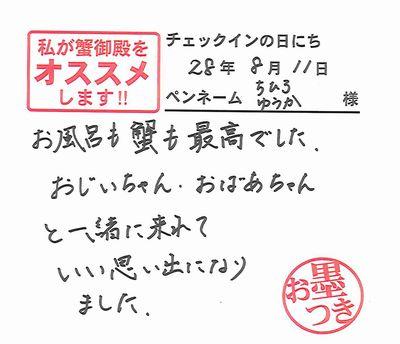 私が蟹御殿を
オススメ
します!!
チェックインの日にち
28年 8月 11日
ペンネーム ちひろ ゆうか 様
お風呂も蟹も最高でした.
おじいちゃん・おばあちゃん
と一緒に来れて
いい思い出になり
ました.
お墨つき